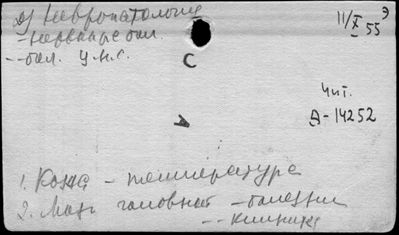 д) Невропатология
11/X 55 Э
- нервные бол.
-- бол. ц.н.с.
С
Чит.
Д-14252
А
1. Кожа - температура
2. Мозг головной - болезни
-- клиника